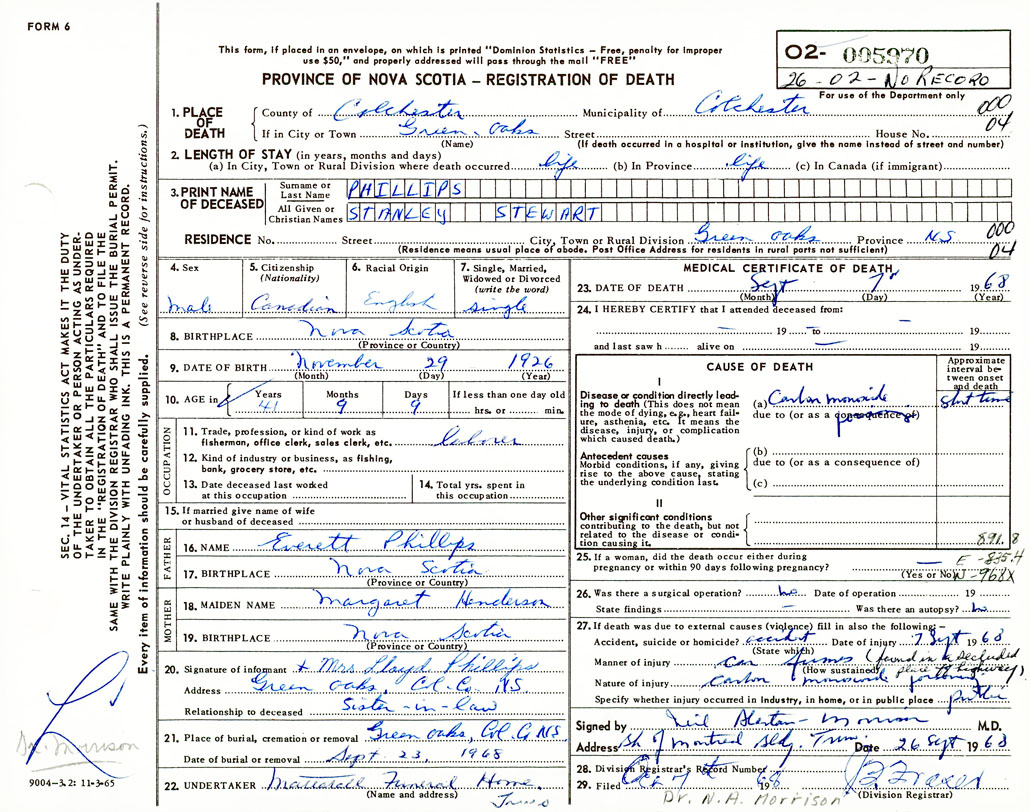 FORM 6
This form, if placed in an envelope, on which is printed "Dominion Statistics – Free, penalty for improper
use $50," and properly addressed will pass through the mail "FREE"
PROVINCE OF NOVA SCOTIA – REGISTRATION OF DEATH
02- 005970
26-02-No Record
For use of the Department only
000
04
1. PLACE OF DEATH
County of Colchester Municipality of Colchester
If in City or Town Green Oaks Street House No.
(Name) (If death occurred in a hospital or institution, give the name instead of street and number)
2. LENGTH OF STAY (in years, months and days)
(a) In City, Town or Rural Division where death occurred life (b) In Province life (c) In Canada (if immigrant)
3. PRINT NAME OF DECEASED
Surname or Last Name PHILLIPS
All Given or Christian Names STANLEY STEWART
RESIDENCE No. Street City, Town or Rural Division Green Oaks Province N.S. 000
(Residence means usual place of abode. Post Office Address for residents in rural parts not sufficient) 04
4. Sex
male
5. Citizenship
(Nationality)
Canadian
6. Racial Origin
English
7. Single, Married,
Widowed or Divorced
(write the word)
single
8. BIRTHPLACE Nova Scotia
(Province or Country)
9. DATE OF BIRTH November 29 1926
(Month) (Day) (Year)
10. AGE in
Years Months Days If less than one day old
41 9 9 hrs. or min.
OCCUPATION
11. Trade, profession, or kind of work as
fisherman, office clerk, sales clerk, etc. laborer
12. Kind of industry or business, as fishing,
bank, grocery store, etc.
13. Date deceased last worked
at this occupation
14. Total yrs. spent in
this occupation
15. If married give name of wife
or husband of deceased
FATHER
16. NAME Everett Phillips
17. BIRTHPLACE Nova Scotia
(Province or Country)
MOTHER
18. MAIDEN NAME Margaret Henderson
19. BIRTHPLACE Nova Scotia
(Province or Country)
20. Signature of informant + Mrs Lloyd Phillips
Address Green Oaks, Col. Co. NS
Relationship to deceased Sister-in-law
21. Place of burial, cremation or removal Green Oaks, Col. Co NS
Date of burial or removal Sept 23, 1968
22. UNDERTAKER Funeral Home
(Name and address) Truro
MEDICAL CERTIFICATE OF DEATH
23. DATE OF DEATH Sept 7 1968
(Month) (Day) (Year)
24. I HEREBY CERTIFY that I attended deceased from:
– 19 – to – 19
and last saw h alive on – 19
CAUSE OF DEATH
Approximate
interval be-
tween onset
and death
I
Disease or condition directly lead-
ing to death (This does not mean
the mode of dying, e.g., heart fail-
ure, asthenia, etc. It means the
disease, injury, or complication
which caused death.)
(a) Carbon monoxide short time
due to (or as a consequence of) poisoning
Antecedent causes
Morbid conditions, if any, giving
rise to the above cause, stating
the underlying condition last.
(b)
due to (or as a consequence of)
(c)
II
Other significant conditions
contributing to the death, but not
related to the disease or condi-
tion causing it.
891.8
E -835.4
N -968X
25. If a woman, did the death occur either during
pregnancy or within 90 days following pregnancy? –
(Yes or No)
26. Was there a surgical operation? no Date of operation 19
State findings – Was there an autopsy? no
27. If death was due to external causes (violence) fill in also the following: –
Accident, suicide or homicide? accident Date of injury 7 Sept 1968
(State which)
Manner of injury car fumes (found in a secluded
(How sustained) place off highway).
Nature of injury carbon monoxide poisoning
Specify whether injury occurred in industry, in home, or in public place public
Signed by Morrison M.D.
Address Bk of Montreal Bldg. Truro Date 26 Sept 1968
28. Division Registrar's Record Number
29. Filed Oct 7 1968 B Fraser
Dr. N. A. Morrison (Division Registrar)
SEC. 14 – VITAL STATISTICS ACT MAKES IT THE DUTY
OF THE UNDERTAKER OR PERSON ACTING AS UNDER-
TAKER TO OBTAIN ALL THE PARTICULARS REQUIRED
IN THE "REGISTRATION OF DEATH" AND TO FILE THE
SAME WITH THE DIVISION REGISTRAR WHO SHALL ISSUE THE BURIAL PERMIT.
WRITE PLAINLY WITH UNFADING INK. THIS IS A PERMANENT RECORD.
Every item of information should be carefully supplied. (See reverse side for instructions.)
Dr. Morrison
9004–3.2: 11-3-65